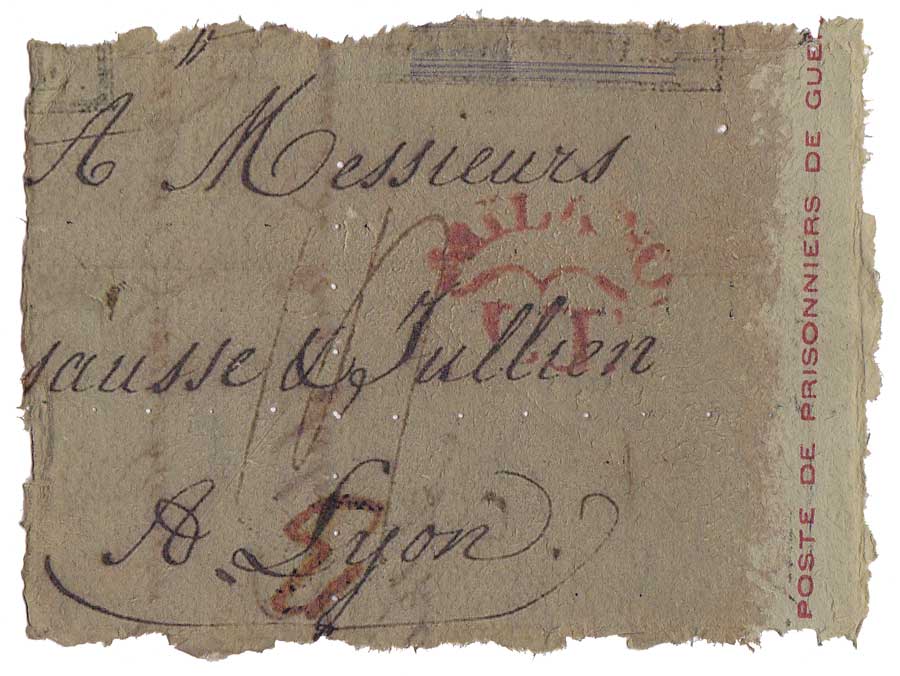 A Messieurs
MILANO
sausse & Jullien
A Lyon.
POSTE DE PRISONNIERS DE GUE